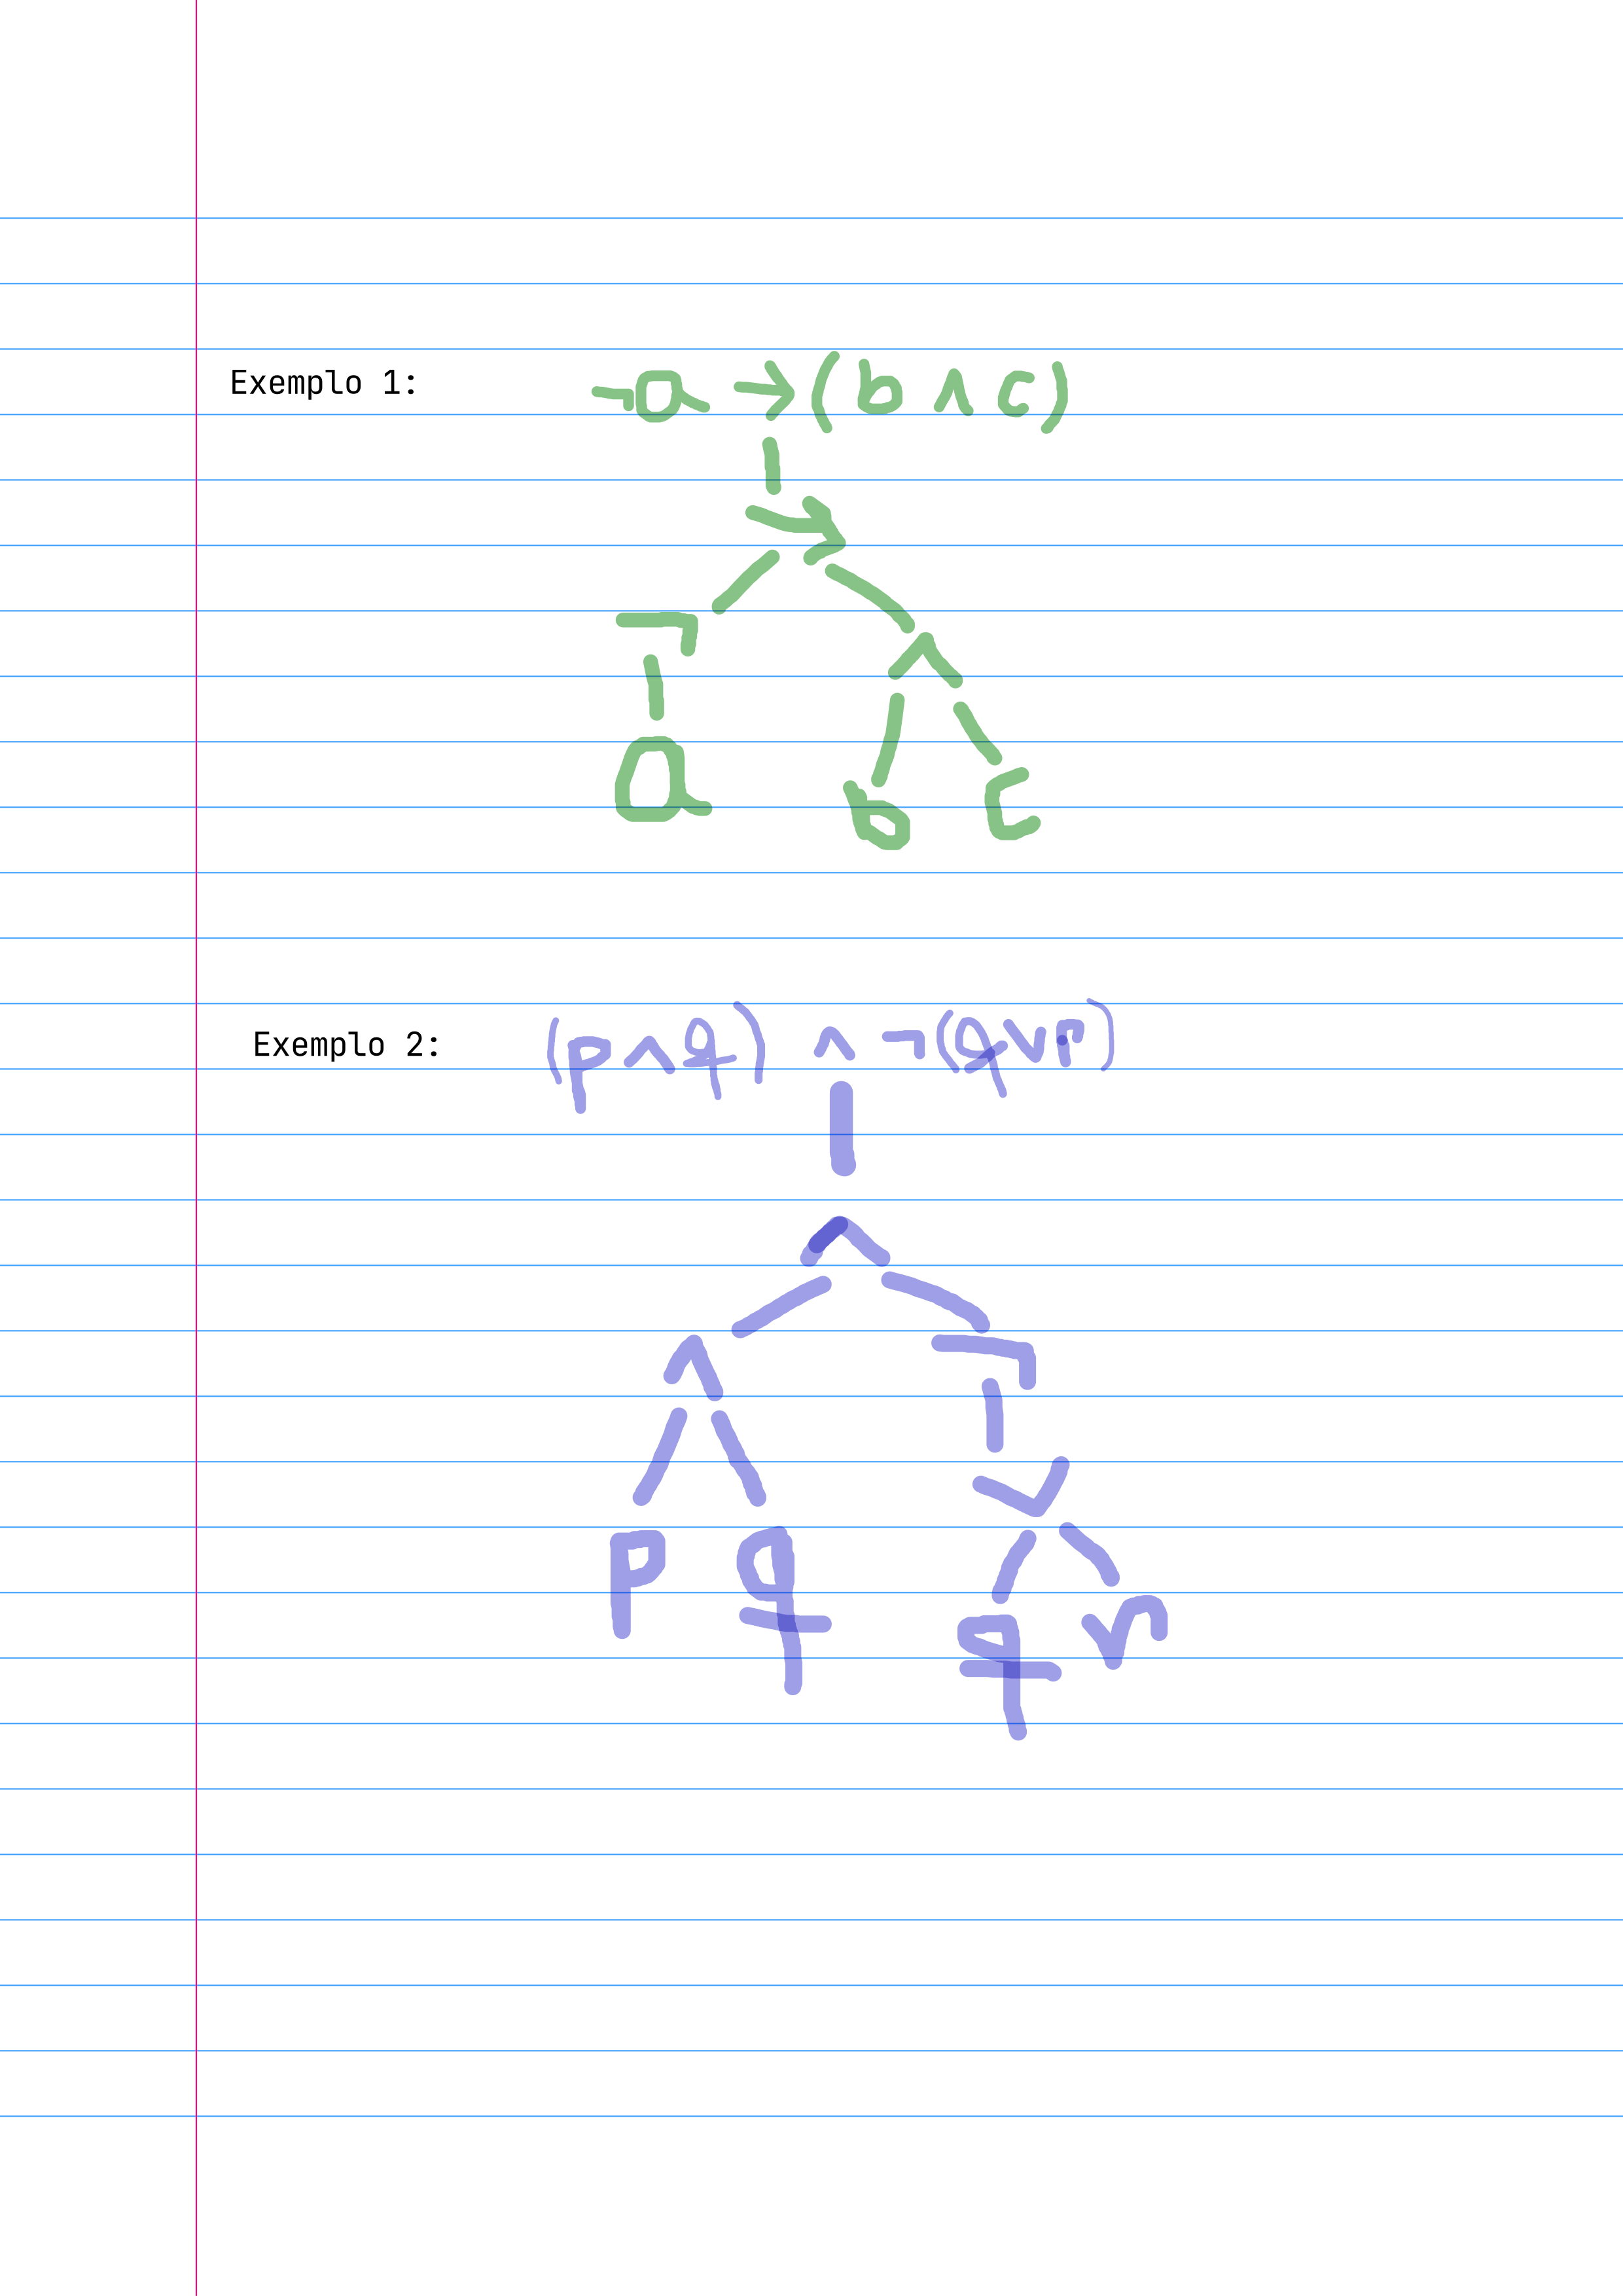 Exemplo 1: ¬a → (b ∧ c)
→
¬ ∧
a b c
Exemplo 2: (p ∧ q) ∧ ¬(q ∨ r)
∧
∧ ¬
∨
p q
q r